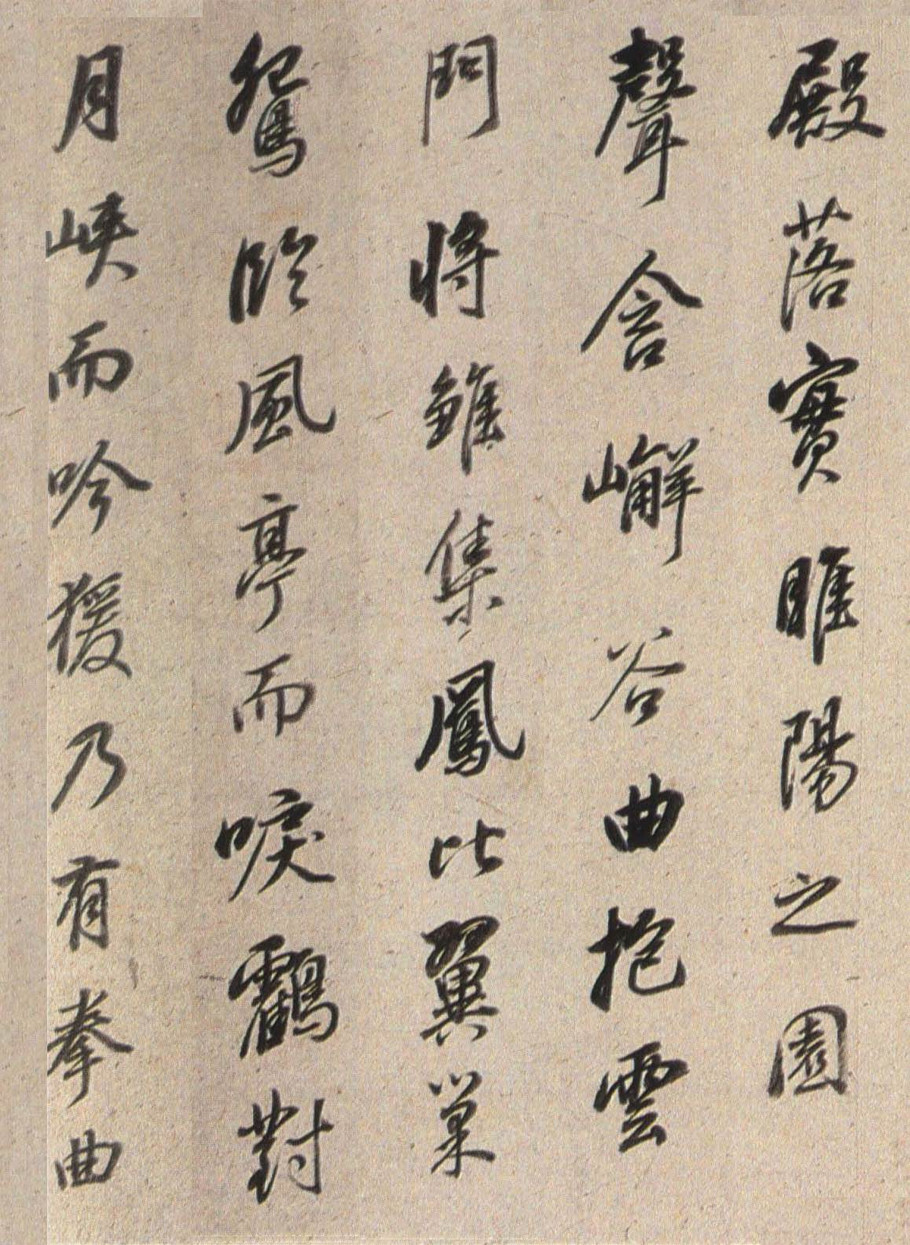 殿落實睢陽之園
聲含嶰谷曲抱雲
門將雛集鳳比翼巢
鴛臨風亭而唳鶴對
月峽而吟猨乃有拳曲